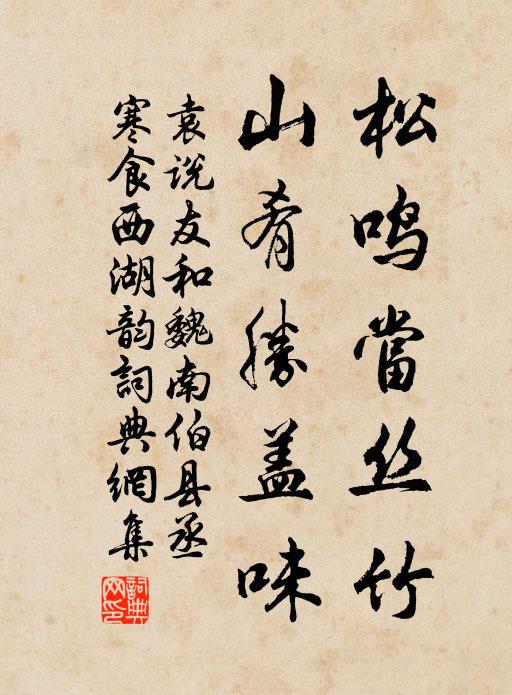 松鸣當丝竹
山肴勝盖味
袁说友和魏南伯县丞
寒食西湖韵詞典網集
詞典
网印